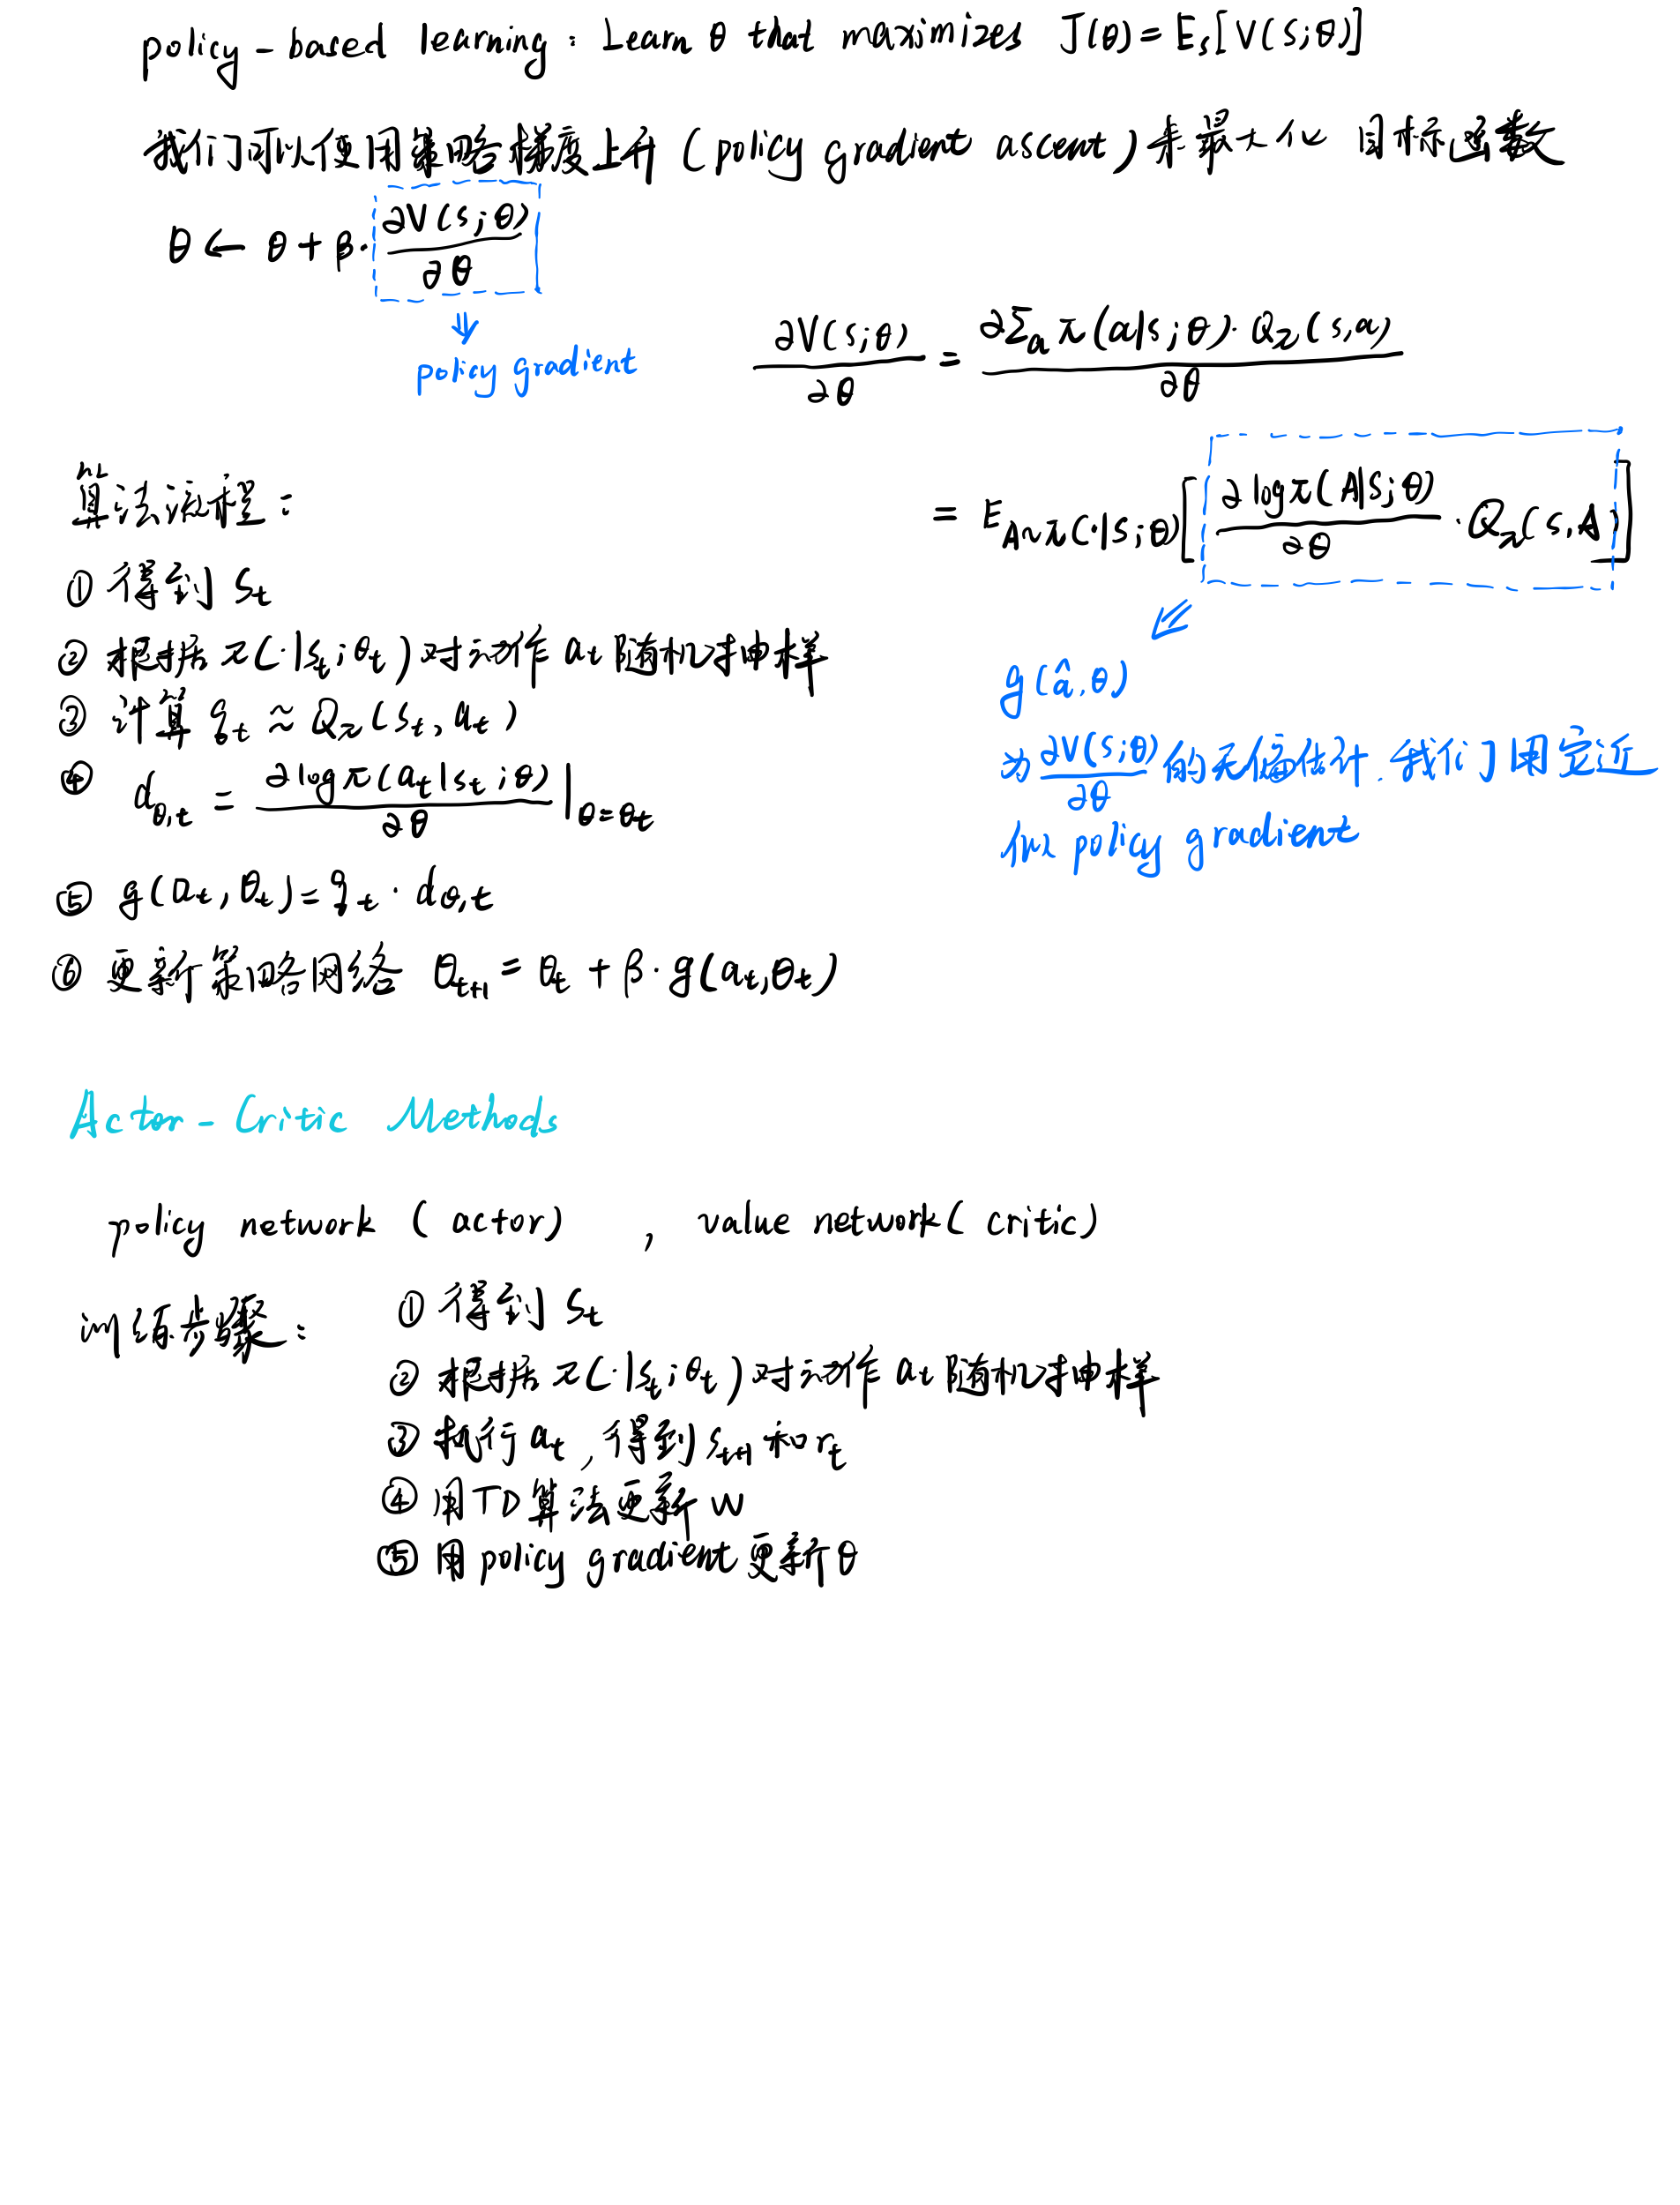 policy-based learning: Learn θ that maximizes J(θ)=E_S[V(S;θ)]
我们可以使用策略梯度上升(policy gradient ascent)来最大化 目标函数
θ ← θ + β · ∂V(s;θ)/∂θ
policy gradient
∂V(s;θ)/∂θ = ∂Σ_a π(a|s;θ)·Q_π(s,a)/∂θ
= E_{A~π(·|s;θ)}[∂logπ(A|s;θ)/∂θ · Q_π(s,A)]
g(â,θ)
为 ∂V(s;θ)/∂θ 的无偏估计.我们用它近
似 policy gradient
算法流程:
① 得到 s_t
② 根据 π(·|s_t;θ_t)对动作 a_t 随机抽样
③ 计算 q_t ≈ Q_π(s_t, a_t)
④ d_{θ,t} = ∂logπ(a_t|s_t;θ)/∂θ |_{θ=θ_t}
⑤ g(a_t,θ_t)=q_t · d_{θ,t}
⑥ 更新策略网络 θ_{t+1} = θ_t + β·g(a_t,θ_t)
Actor-Critic Methods
policy network (actor) , value network(critic)
训练步骤:
① 得到 s_t
② 根据 π(·|s_t;θ_t)对动作 a_t 随机抽样
③ 执行 a_t ,得到 s_{t+1} 和 r_t
④ 用TD算法更新 w
⑤ 用 policy gradient 更新 θ